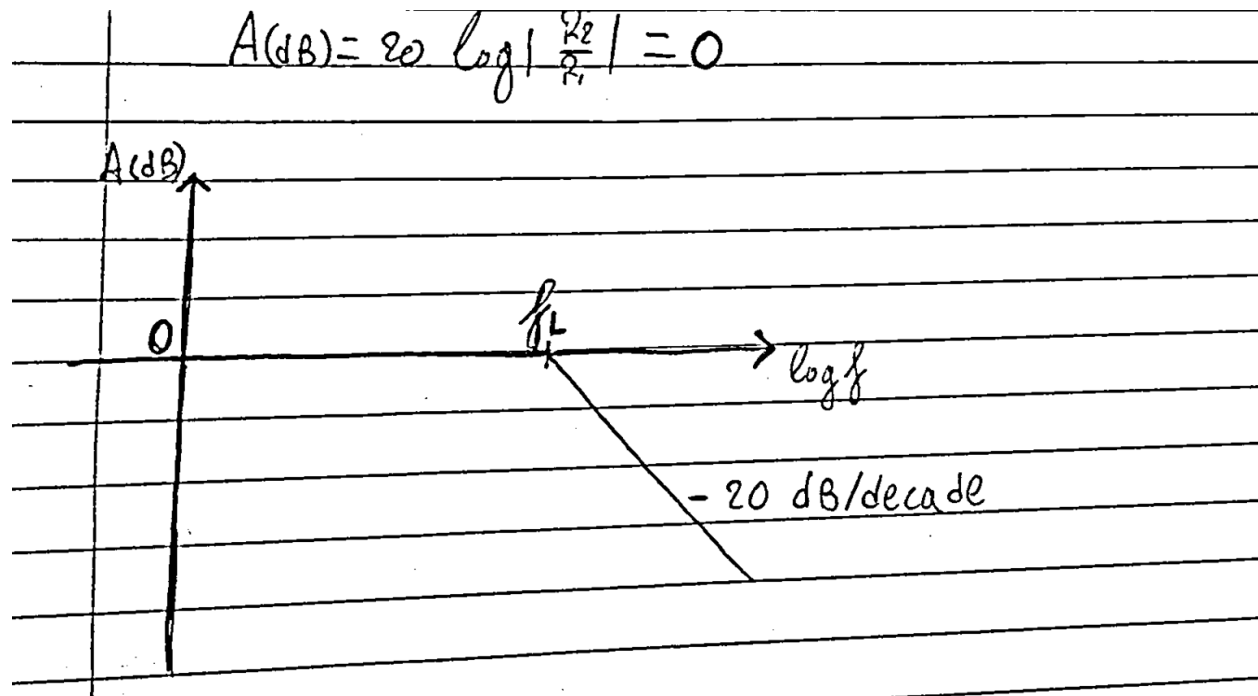 A(dB) = 20 log | R2/R1 | = 0
A(dB)
0
fL
log f
- 20 dB/decade